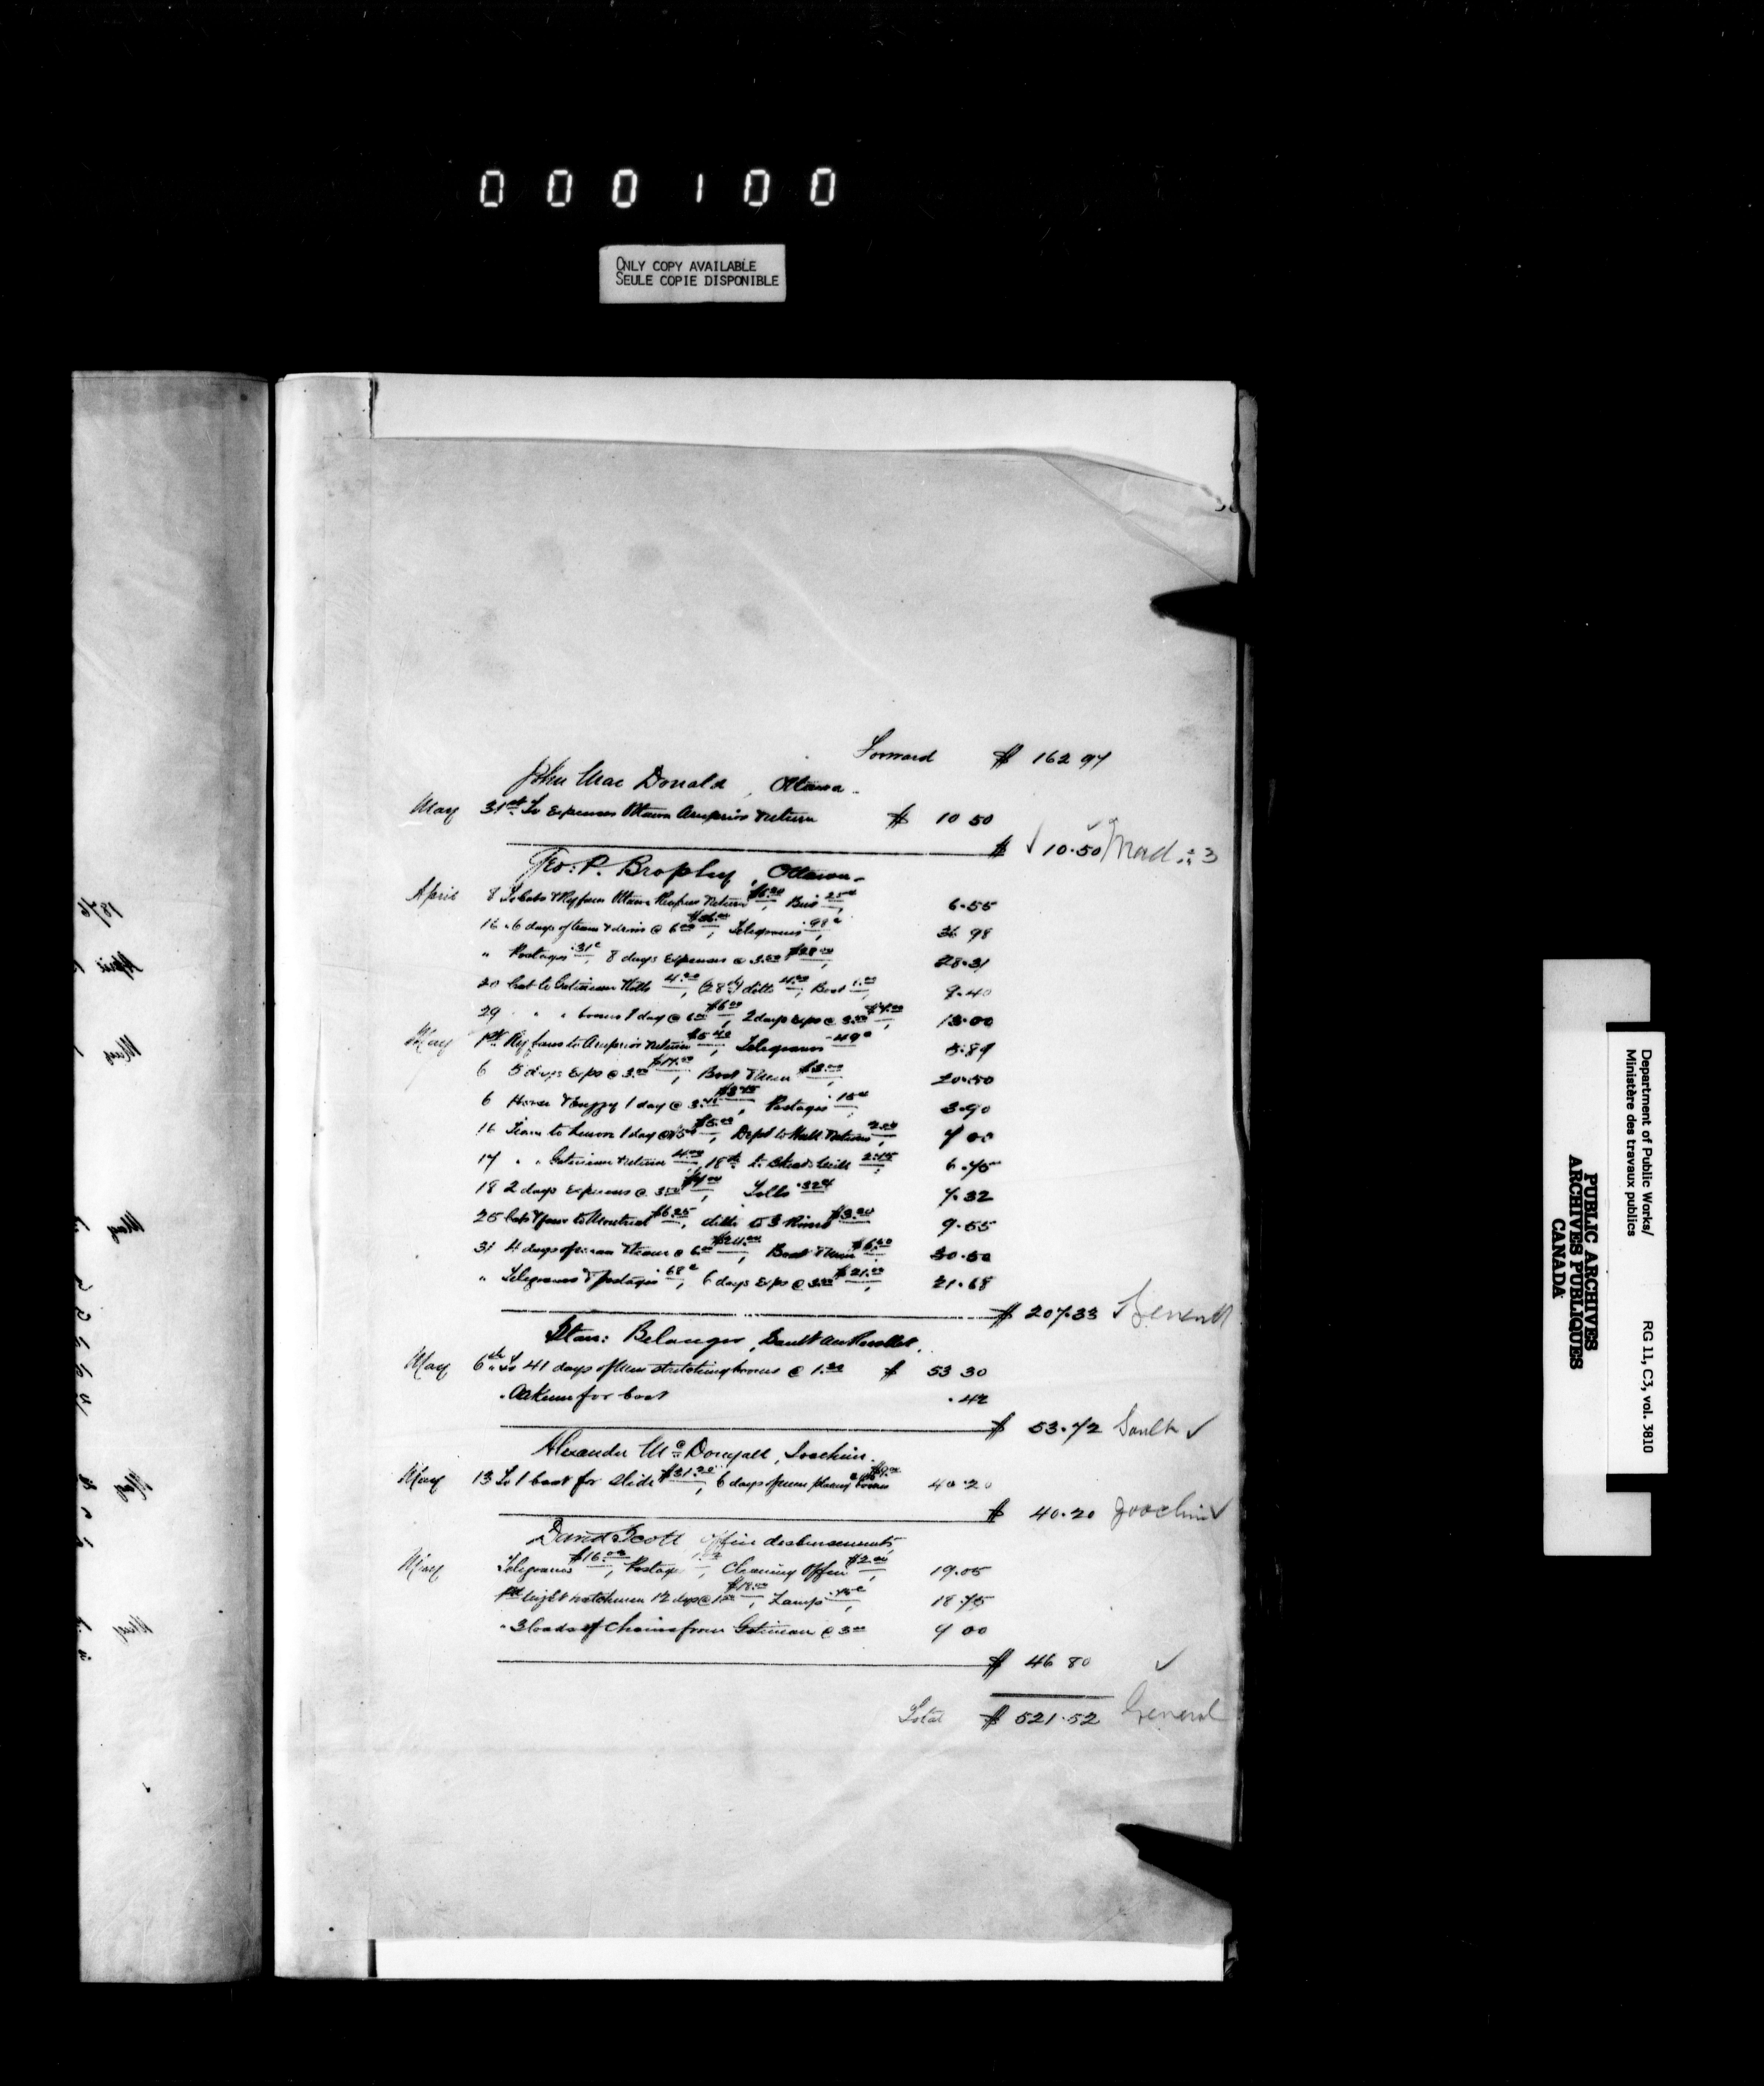 000100
ONLY COPY AVAILABLE
SEULE COPIE DISPONIBLE
Forward $ 162 97
John Mac Donald, Ottawa
May 31st To Expenses Ottawa Arnprior & return $ 10 50
$ 10.50 Mad
Geo: P. Brophy, Ottawa
April 8 To Cabs & Ry fares Ottawa & return, Bus 25c 6.55
16 " 6 days of team & driver @ 6.00 $36.00, Telegrams .98c 36 98
" Postages .31c, 8 days Expenses @ 3.50 $28.00 28.31
20 Cab to Gatineau 4.00, (28th) ditto 4.00, Boat 9.40
29 " " booms 1 day @ 6.00 $6.00, 2 days Exps @ 3.50 $7.00 13.00
May 1st Ry fares to Arnprior & return $5.40, Telegrams .49c 5.89
6 5 days Exps @ 3.50 $17.50, Boat & Men $3.00 20.50
6 Horse & Buggy 1 day @ 3.75 $3.75, Postages .15c 3.90
16 Team to 1 day @ 5.00 $5.00, to Hull & return 2.00 7 00
17 " " Gatineau & return 4.00, 18th to 2.75 6.75
18 2 days Expenses @ 3.50 $7.00, Tolls .32c 7.32
25 Cabs & fare to Montreal $6.25, ditto to 3 Rivers $3.30 9.55
31 4 days of man & team @ 6.00 $24.00, Boat & Men $6.50 30.50
" Telegrams & postages .68c, 6 days Exps @ 3.50 $21.00 21.68
$ 207.33 General
Stan: Belanger, Sault au Recollet
May 6th To 41 days of Men stretching booms @ 1.30 $ 53 30
" Oakum for boat .42
$ 53.72 Sault ✓
Alexander McDougall, Joachim
May 13 To 1 boat for Slide $31.20, 6 days of men placing booms @ 1.50 $9.00 40.20
$ 40.20 Joachim ✓
David Scott office disbursements
May Telegrams $16.02, Postage, Cleaning Office $2.00 19.05
Night watchman 12 days @ 1.50 $18.00, Lamps .75c 18.75
" 3 loads of Chains from Gatineau @ 3.00 9 00
$ 46 80 ✓
Total $ 521.52 General
1876
April
May
May
May
May
Department of Public Works/
Ministère des travaux publics
RG 11, C3, vol. 3810
PUBLIC ARCHIVES
ARCHIVES PUBLIQUES
CANADA